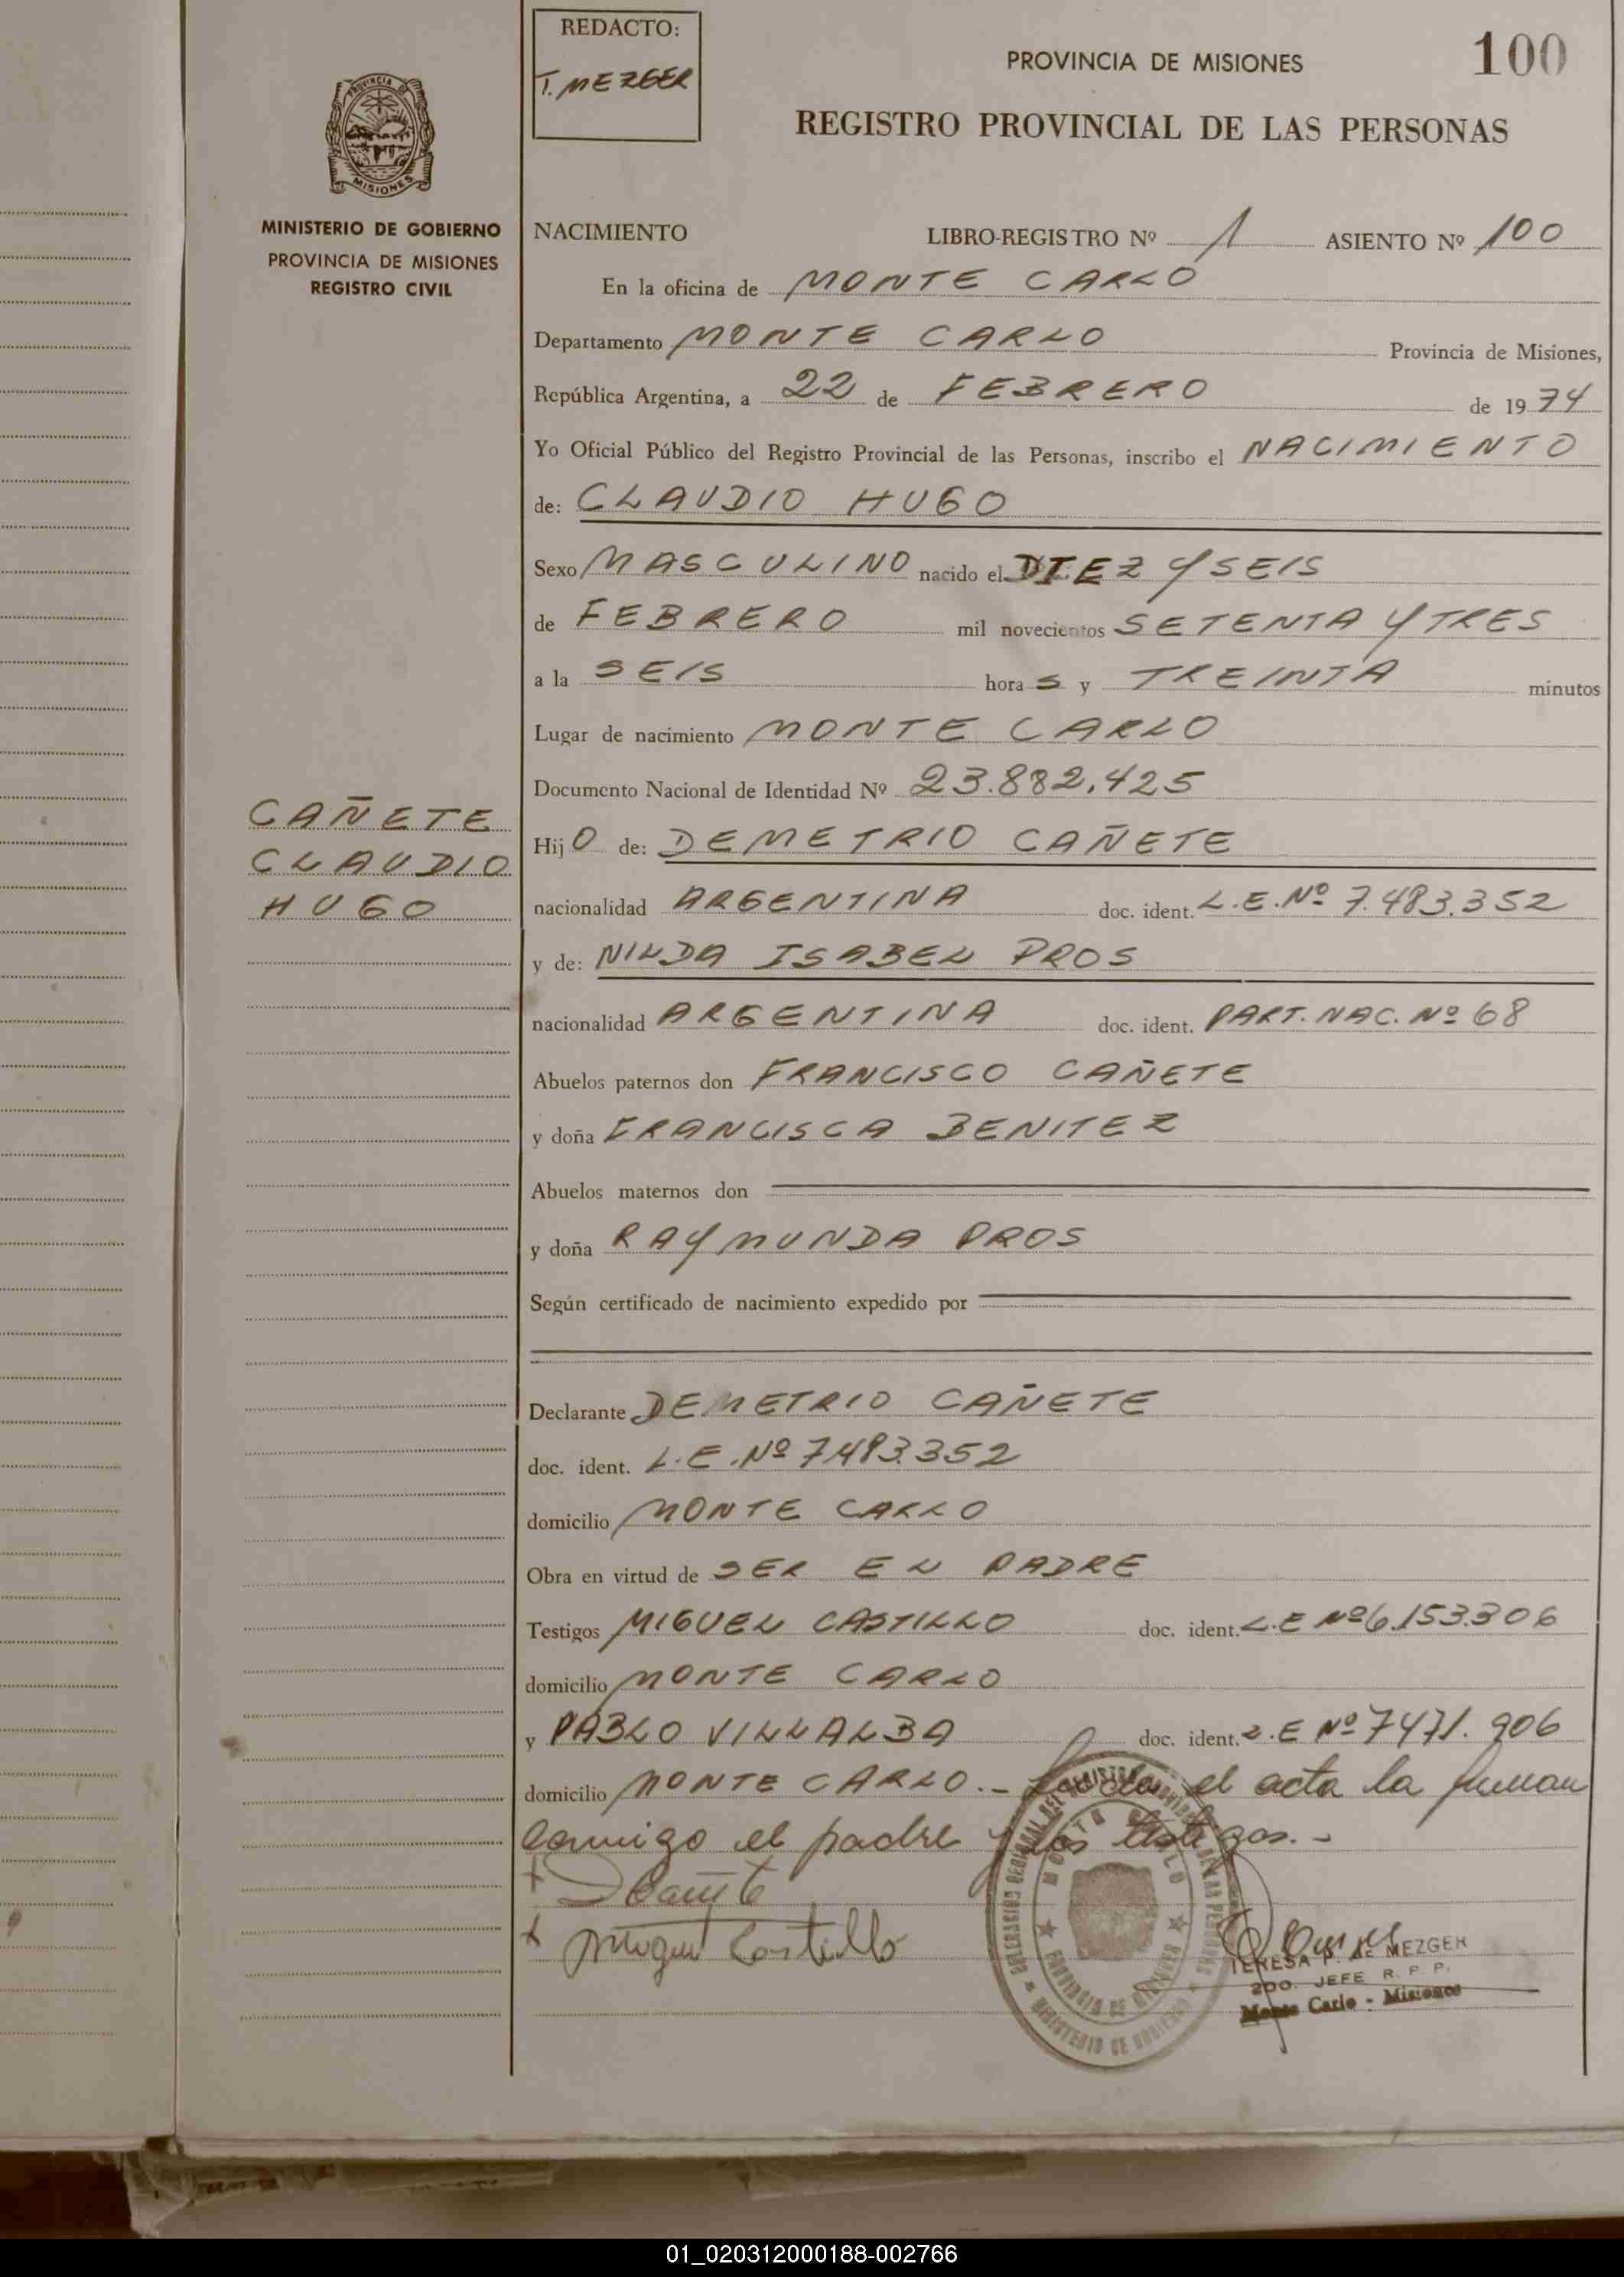 REDACTO:
T. MEZGER
PROVINCIA DE MISIONES
100
REGISTRO PROVINCIAL DE LAS PERSONAS
PROVINCIA DE
MISIONES
MINISTERIO DE GOBIERNO
PROVINCIA DE MISIONES
REGISTRO CIVIL
NACIMIENTO LIBRO-REGISTRO Nº 1 ASIENTO Nº 100
En la oficina de MONTE CARLO
Departamento MONTE CARLO Provincia de Misiones,
República Argentina, a 22 de FEBRERO de 1974
Yo Oficial Público del Registro Provincial de las Personas, inscribo el NACIMIENTO
de: CLAUDIO HUGO
Sexo MASCULINO nacido el DIEZ Y SEIS
de FEBRERO mil novecientos SETENTA Y TRES
a la SEIS hora S y TREINTA minutos
Lugar de nacimiento MONTE CARLO
Documento Nacional de Identidad Nº 23.882.425
CAÑETE
CLAUDIO
HUGO
Hij O de: DEMETRIO CAÑETE
nacionalidad ARGENTINA doc. ident. L.E.Nº 7.483.352
y de: NILDA ISABEL PROS
nacionalidad ARGENTINA doc. ident. PART. NAC. Nº 68
Abuelos paternos don FRANCISCO CAÑETE
y doña FRANCISCA BENITEZ
Abuelos maternos don
y doña RAYMUNDA PROS
Según certificado de nacimiento expedido por
Declarante DEMETRIO CAÑETE
doc. ident. L.E.Nº 7483.352
domicilio MONTE CARLO
Obra en virtud de SER EL PADRE
Testigos MIGUEL CASTILLO doc. ident. L.E Nº 6.153.306
domicilio MONTE CARLO
y PABLO VILLALBA doc. ident. L.E Nº 7471.906
domicilio MONTE CARLO.- el acta la firman
conmigo el padre y los testigos.-
D Cañete
Miguel Castillo
MONTE CARLO
PROVINCIA DE MISIONES
MINISTERIO DE GOBIERNO
TERESA P. de MEZGER
2DO. JEFE R. P. P.
Monte Carlo - Misiones
01_020312000188-002766